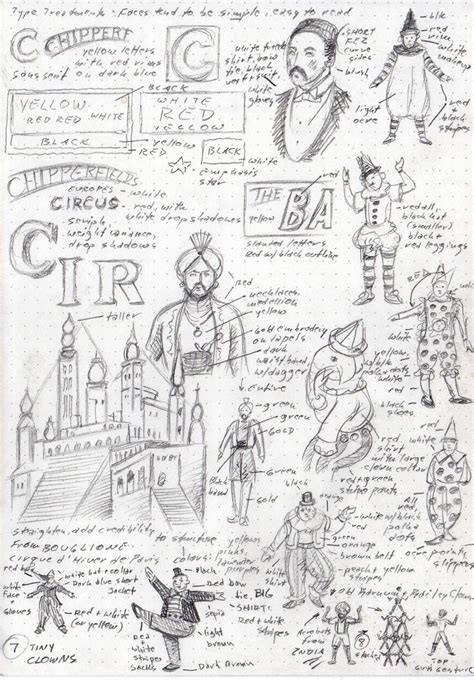 Type Treatments - Faces tend to be simple, easy to read
CHIPPERF
yellow letters
with red rims
sans serif on dark blue
C
white
shirt, bow
tie, black
vest + suit,
white
gloves
SHORT
FEZ
curve
sides
blush
blk
red
rims,
white
makeup
light
ocre
red +
black
stripes
BLACK
YELLOW
RED RED
WHITE
BLACK
WHITE
RED
YELLOW
YELLOW
RED
BLACK
white
emphasis
star
CHIPPERFIELDS
EUROPES - white
CIRCUS - red, with
white drop shadows
simple,
weight variances,
drop shadows
THE
BA
red
yellow
slanted letters
Red w/ black outline
red all,
black hat
(smaller)
black +
red leggings
CIR
taller
red
necklaces,
medallion
yellow
gold embroidery
on lapels
dark
waist band
w/ dagger
RED
white
yellow,
w/ polka dots
white
red
black
shoes
green
green
GOLD
Green
black
gold
Black
band
red, white
shirt
with large
clown collar
red + green
striped pants
straighten, add credibility
to structure
From BOUGLIONE
Cirque d'Hiver de Paris
colours:
yellows
pinks,
lavender
purples
red
green
orange
brown belt
peach + yellow
stripes
white w/ black
All
red,
polka
dots
ocre pants,
slippers
red
white
face
Gloves
white hat + collar
Dark blue short
Jacket
Red + white
(or yellow)
7 TINY
CLOWNS
black
red bow
tie, BIG
SHIRT!
sepia
light
brown
red
+
white
stripes
socks
Dark Brown
White
Red + white
stripes
Acrobats
from
INDIA
8
stacked
TOP
guys gesture